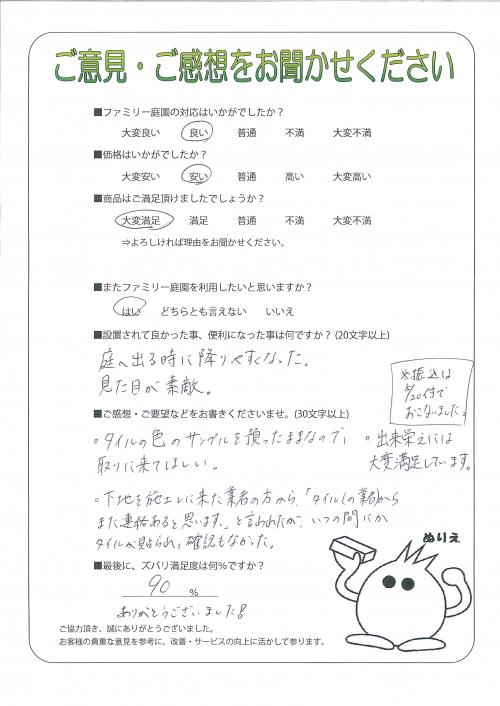 ご意見・ご感想をお聞かせください
■ファミリー庭園の対応はいかがでしたか？
大変良い 良い 普通 不満 大変不満
■価格はいかがでしたか？
大変安い 安い 普通 高い 大変高い
■商品はご満足頂けましたでしょうか？
大変満足 満足 普通 不満 大変不満
⇒よろしければ理由をお聞かせください。
■またファミリー庭園を利用したいと思いますか？
はい どちらとも言えない いいえ
■設置されて良かった事、便利になった事は何ですか？(20文字以上)
庭へ出る時に降りやすくなった。
見た目が素敵。
※振込は
5/20付で
おこないました。
■ご感想・ご要望などをお書きくださいませ。(30文字以上)
・タイルの色のサンプルを預ったままなので
取りに来てほしい。
・出来栄えには
大変満足しています。
・下地を施工しに来た業者の方から、「タイルの業者から
また連絡あると思います。」と言われたが、いつの間にか
タイルが貼られ、確認もなかった。
■最後に、ズバリ満足度は何％ですか？
90 ％
ありがとうございました!
ぬりえ
ご協力頂き、誠にありがとうございました。
お客様の貴重な意見を参考に、改善・サービスの向上に活かして参ります。